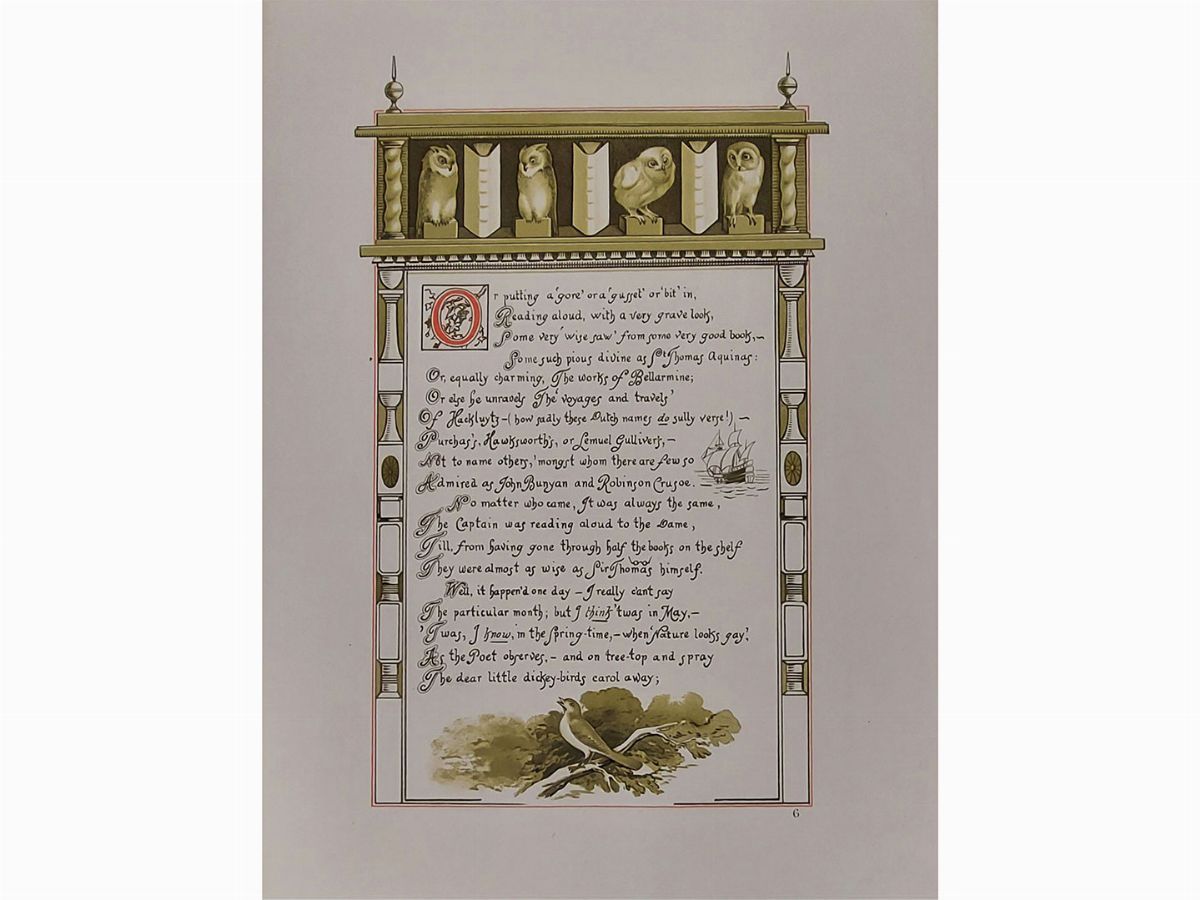 Or putting a 'gore' or a 'gusset' or 'bit' in,
Reading aloud, with a very grave look,
Some very 'wise saw' from some very good book,—
Some such pious divine as St Thomas Aquinas:
Or, equally charming, The works of Bellarmine;
Or else he unravels The 'voyages and travels'
Of Hackluytz—(how sadly these Dutch names do sully verse!)—
Purchas's, Hawksworth's, or Lemuel Gulliver's,—
Not to name others, 'mongst whom there are few so
Admired as John Bunyan and Robinson Crusoe.
No matter who came, It was always the same,
The Captain was reading aloud to the Dame,
Till, from having gone through half the books on the shelf
They were almost as wise as Sir Thomas himself.
Well, it happen'd one day — I really can't say
The particular month; but I think 'twas in May,—
'Twas, I know, in the Spring-time,—when 'Nature looks gay',
As the Poet observes,— and on tree-top and spray
The dear little dickey-birds carol away;
6